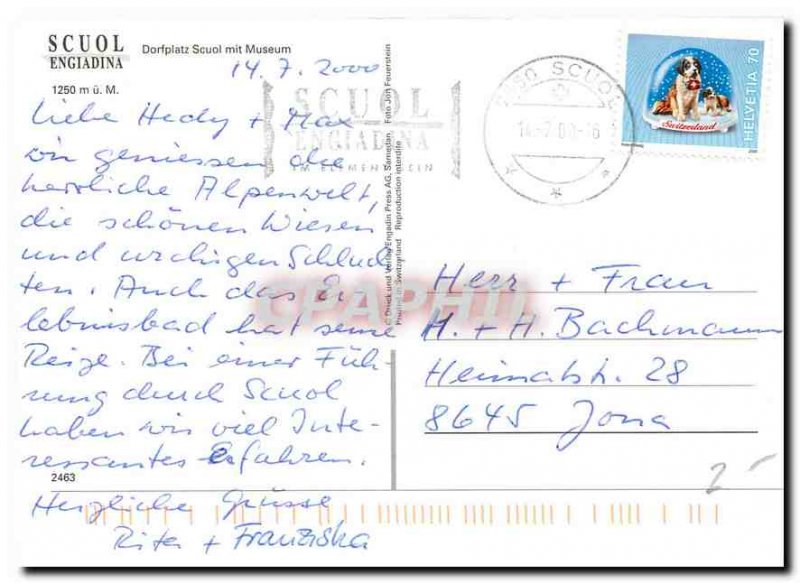 SCUOL
ENGIADINA
1250 m ü. M.
Dorfplatz Scuol mit Museum
14.7.2000
Liebe Hedy + Max
wir geniessen die
herrliche Alpenwelt,
die schönen Wiesen
und urchigen Schluch
ten. Auch das Er
lebnisbad hat seine
Reize. Bei einer Füh-
rung durch Scuol
haben wir viel Inte-
ressantes erfahren.
Herzliche Grüsse
Rita + Franziska
2463
SCUOL
ENGIADINA
SCUOL
Switzerland
HELVETIA 70
© Druck und Verlag Engadin Press AG, Samedan Foto Jon Feuerstein
Printed in Switzerland Reproduction interdite
Herr + Frau
H. + H. Bachmann
Heimatstr. 28
8645 Jona
CPAPHIL